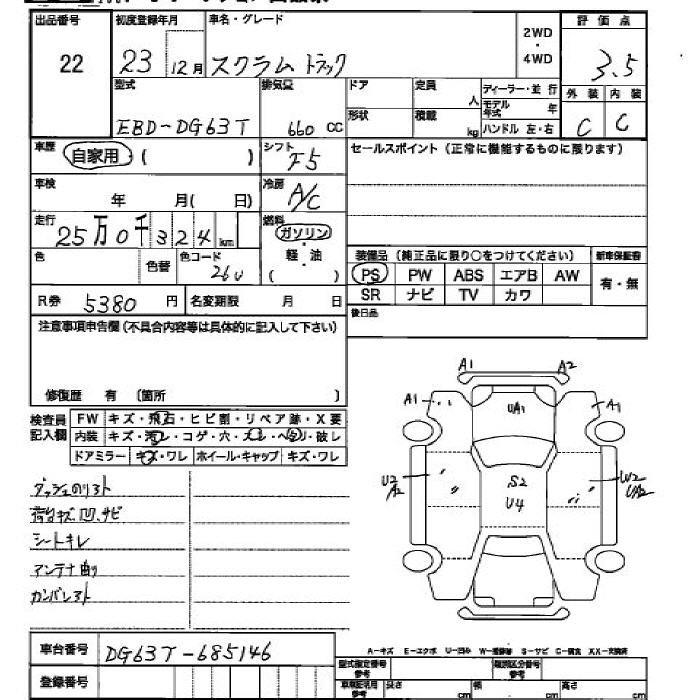 出品番号 初度登録年月 車名・グレード 2WD・4WD 評価点
22 23 12月 スクラム トラック 3.5
型式 排気量 ドア 定員 人 ディーラー・並行 外装 内装
EBD-DG63T 660 CC 形状 積載 kg モデル年式 年 C C
ハンドル 左・右
車歴 自家用 ( ) シフト F5 セールスポイント(正常に機能するものに限ります)
車検 年 月( 日) 冷房 A/C
走行 25万0千324km 燃料 ガソリン・軽・油 ( )
色 色替 色コード 26U
装備品(純正品に限り○をつけてください) 新車保証書
PS PW ABS エアB AW 有・無
SR ナビ TV カワ
R券 5380円 名変期限 月 日 後日品
注意事項申告欄(不具合内容等は具体的に記入して下さい)
修復歴 有 〔箇所 〕
検査員記入欄 FW キズ・飛石・ヒビ割・リペア跡・X要
内装 キズ・汚レ・コゲ・穴・スレ・ヘタリ・破レ
ドアミラー キズ・ワレ ホイール・キャップ キズ・ワレ
A1 A2
A1 UA1 A1
U2 A2 S2 U4 W2 UA2
荷台キズ凹、サビ
シートキレ
アンテナ曲り
A-キズ E-エクボ U-凹み W-補修跡 S-サビ C-腐食 XX-交換済
車台番号 DG63T-685146
型式指定番号 参考 類別区分番号 参考
登録番号 長さ cm 幅 cm 高さ cm